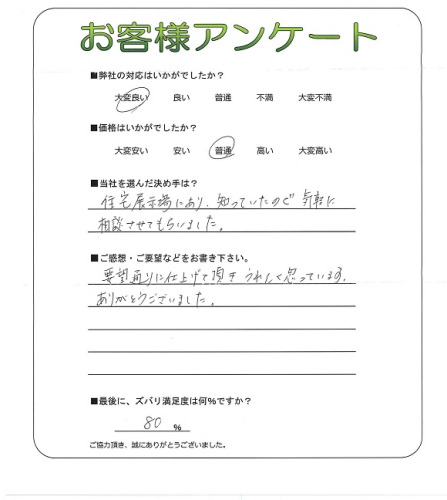 お客様アンケート
■弊社の対応はいかがでしたか？
大変良い 良い 普通 不満 大変不満
■価格はいかがでしたか？
大変安い 安い 普通 高い 大変高い
■当社を選んだ決め手は？
住宅展示場にあり、知っていたので気軽に
相談させてもらいました。
■ご感想・ご要望などをお書き下さい。
要望通りに仕上げて頂きうれしく思っています。
ありがとうございました。
■最後に、ズバリ満足度は何%ですか？
80 %
ご協力頂き、誠にありがとうございました。